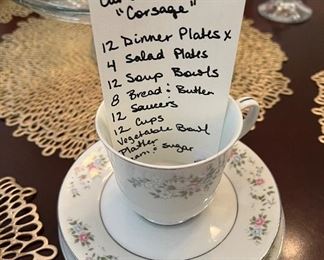 "Corsage"
12 Dinner Plates x
4 Salad Plates
12 Soup Bowls
8 Bread : Butter
12 Saucers
12 Cups
Vegetable Bowl
Platter
: Sugar